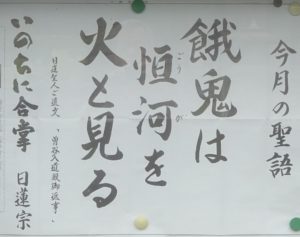 今月の聖語
餓鬼は
恒河を
ごうが
火と見る
日蓮聖人ご遺文『曽谷入道殿御返事』
いのちに合掌 日蓮宗